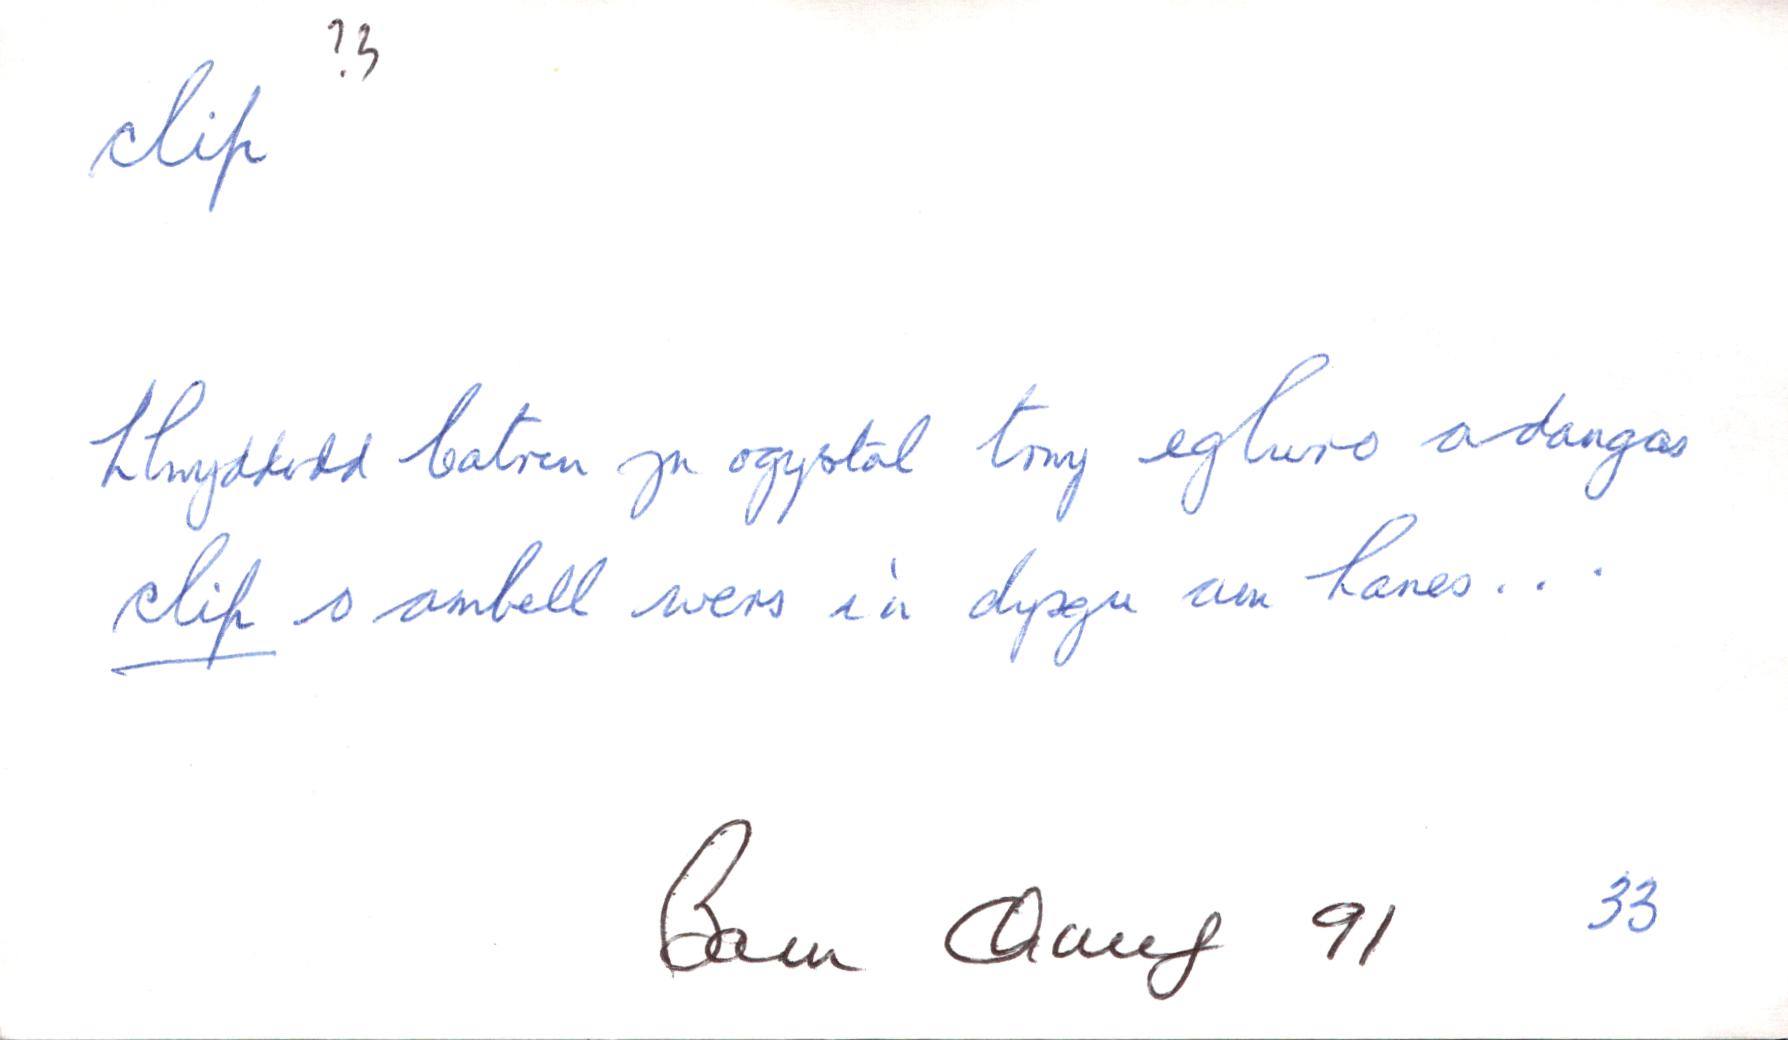 ?3
clip
Llwyddodd Catrin yn ogystal trwy egluro a dangos
clip o ambell wers i'n dysgu am hanes...
Barn Chwef 91 33